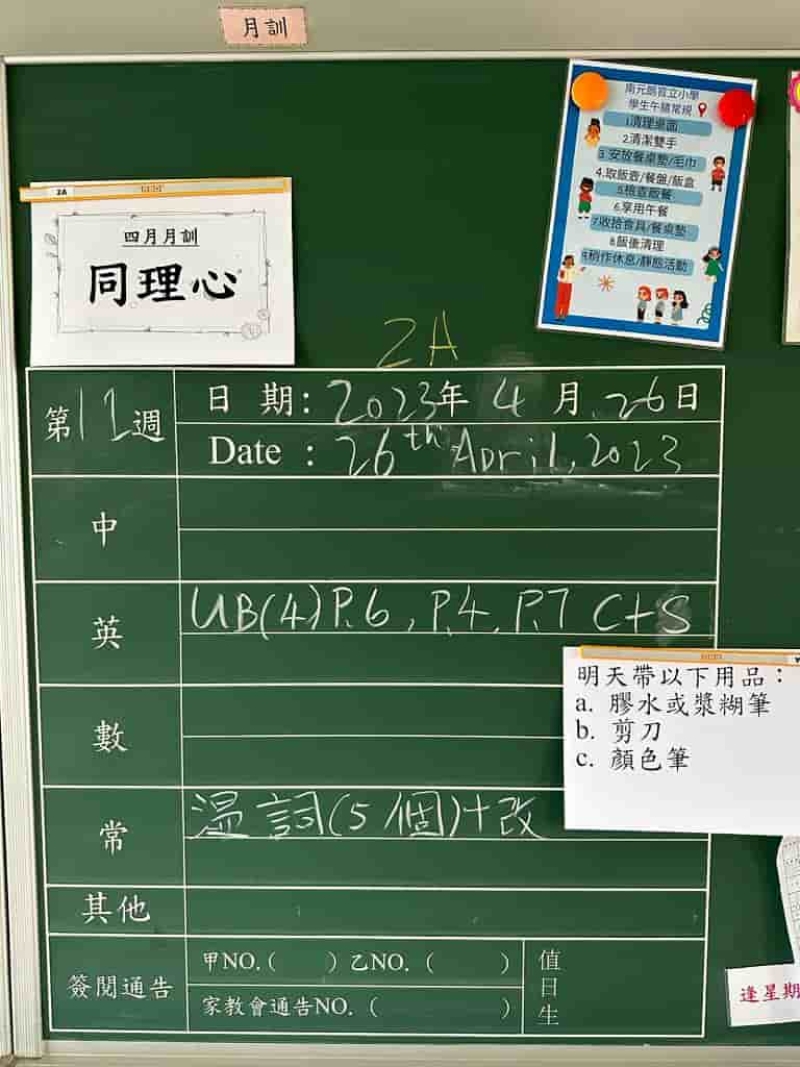 月訓
南元朗官立小學
學生午膳常規
1.清理桌面
2.清潔雙手
3.安放餐桌墊/毛巾
4.取飯壺/餐盤/飯盒
5.檢查飯餐
6.享用午餐
7.收拾食具/餐桌墊
8.飯後清理
9.稍作休息/靜態活動
2A
四月月訓
同理心
2A
第12週
日 期: 2023年 4 月 26日
Date : 26th April, 2023
中
英
UB(4)P.6, P.4, P.7 C+S
明天帶以下用品：
a. 膠水或漿糊筆
b. 剪刀
c. 顏色筆
數
常
溫詞(5個)+改
其他
簽閱通告
甲NO.( ) 乙NO. ( )
家教會通告NO. ( )
值日生
逢星期